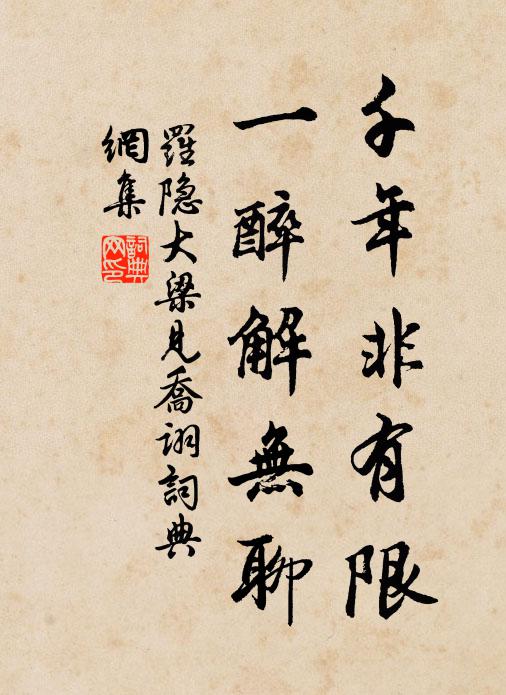 千年非有限
一醉解無聊
羅隐大梁見喬詡詞典
網集
詞典
网印